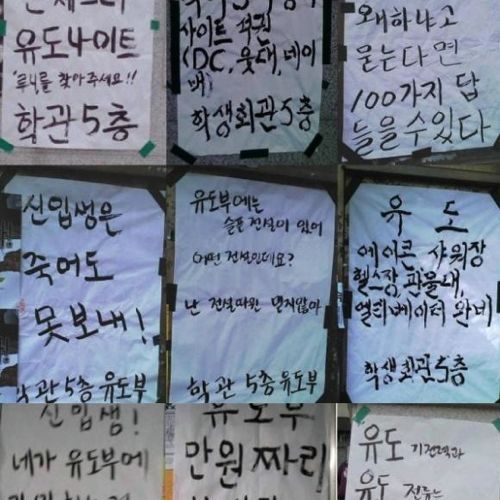 유도나이트
'루니를 찾아주세요!!
학관 5층
사이트 석권
(DC, 웃대, 네이
버)
학생회관 5층
왜하냐고
묻는다면
100가지 답
들을수있다
신입생은
죽어도
못보내!
학관 5층 유도부
유도부에는
슬픈 전설이 있어
어떤 전설인데요?
난 전설따윈 믿지않아
학관 5층 유도부
유 도
에어콘 샤워장
헬스장, 관물대,
엘리베이터 완비
학생회관 5층
신입생!
네가 유도부에
유도부
만원 짜리
유도 기전력과
유도 전류는